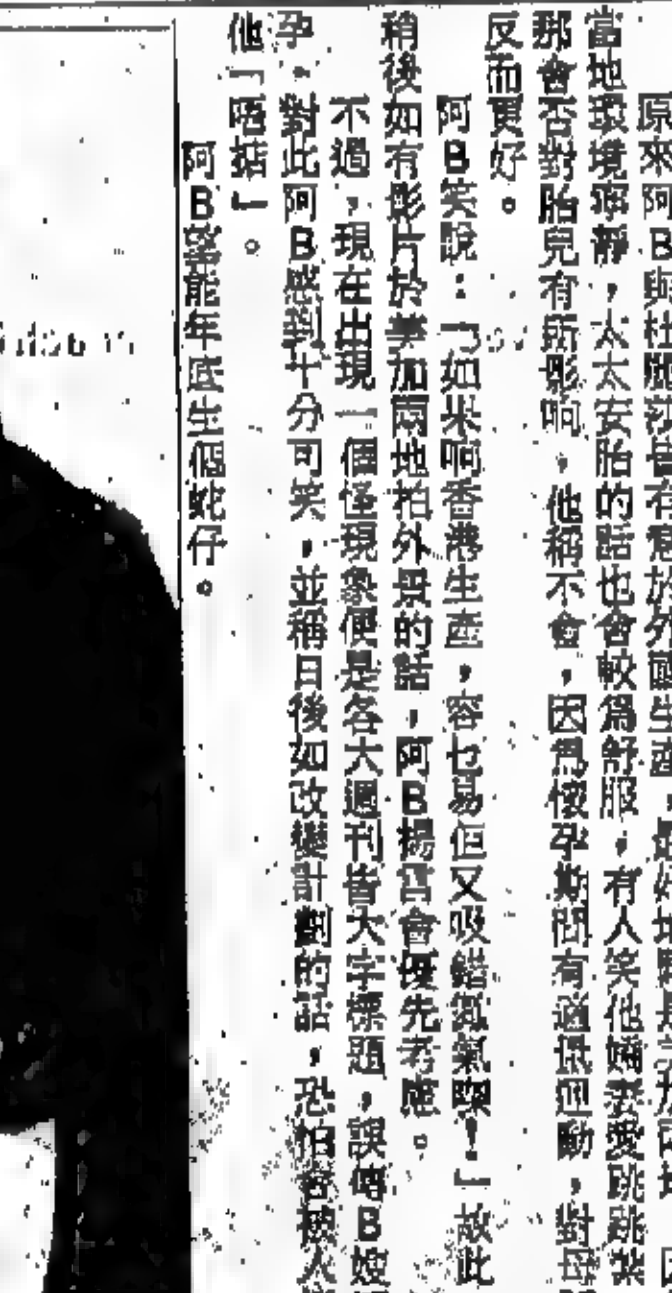 原來阿B與杜麗莎曾有意於外國生產，
當地環境寧靜，太太安胎的話也會較為舒服，有人笑他嬌妻愛跳跳
那會否對胎兒有所影响，他稱不會，因為懷孕期間有適量運動，對母
反而更好。
阿B笑說：「如果响香港生產，容乜易但又吸錯氣㗎！」故此
稍後如有影片於美加兩地拍外景的話，阿B揚言會優先考慮。
不過，現在出現一個怪現象便是各大週刊皆大字標題，誤傳B嫂
孕，對此阿B感到十分可笑，並稱日後如改變計劃的話，恐怕會被人
他「唔掂」。
阿B望能年底生個蛇仔。